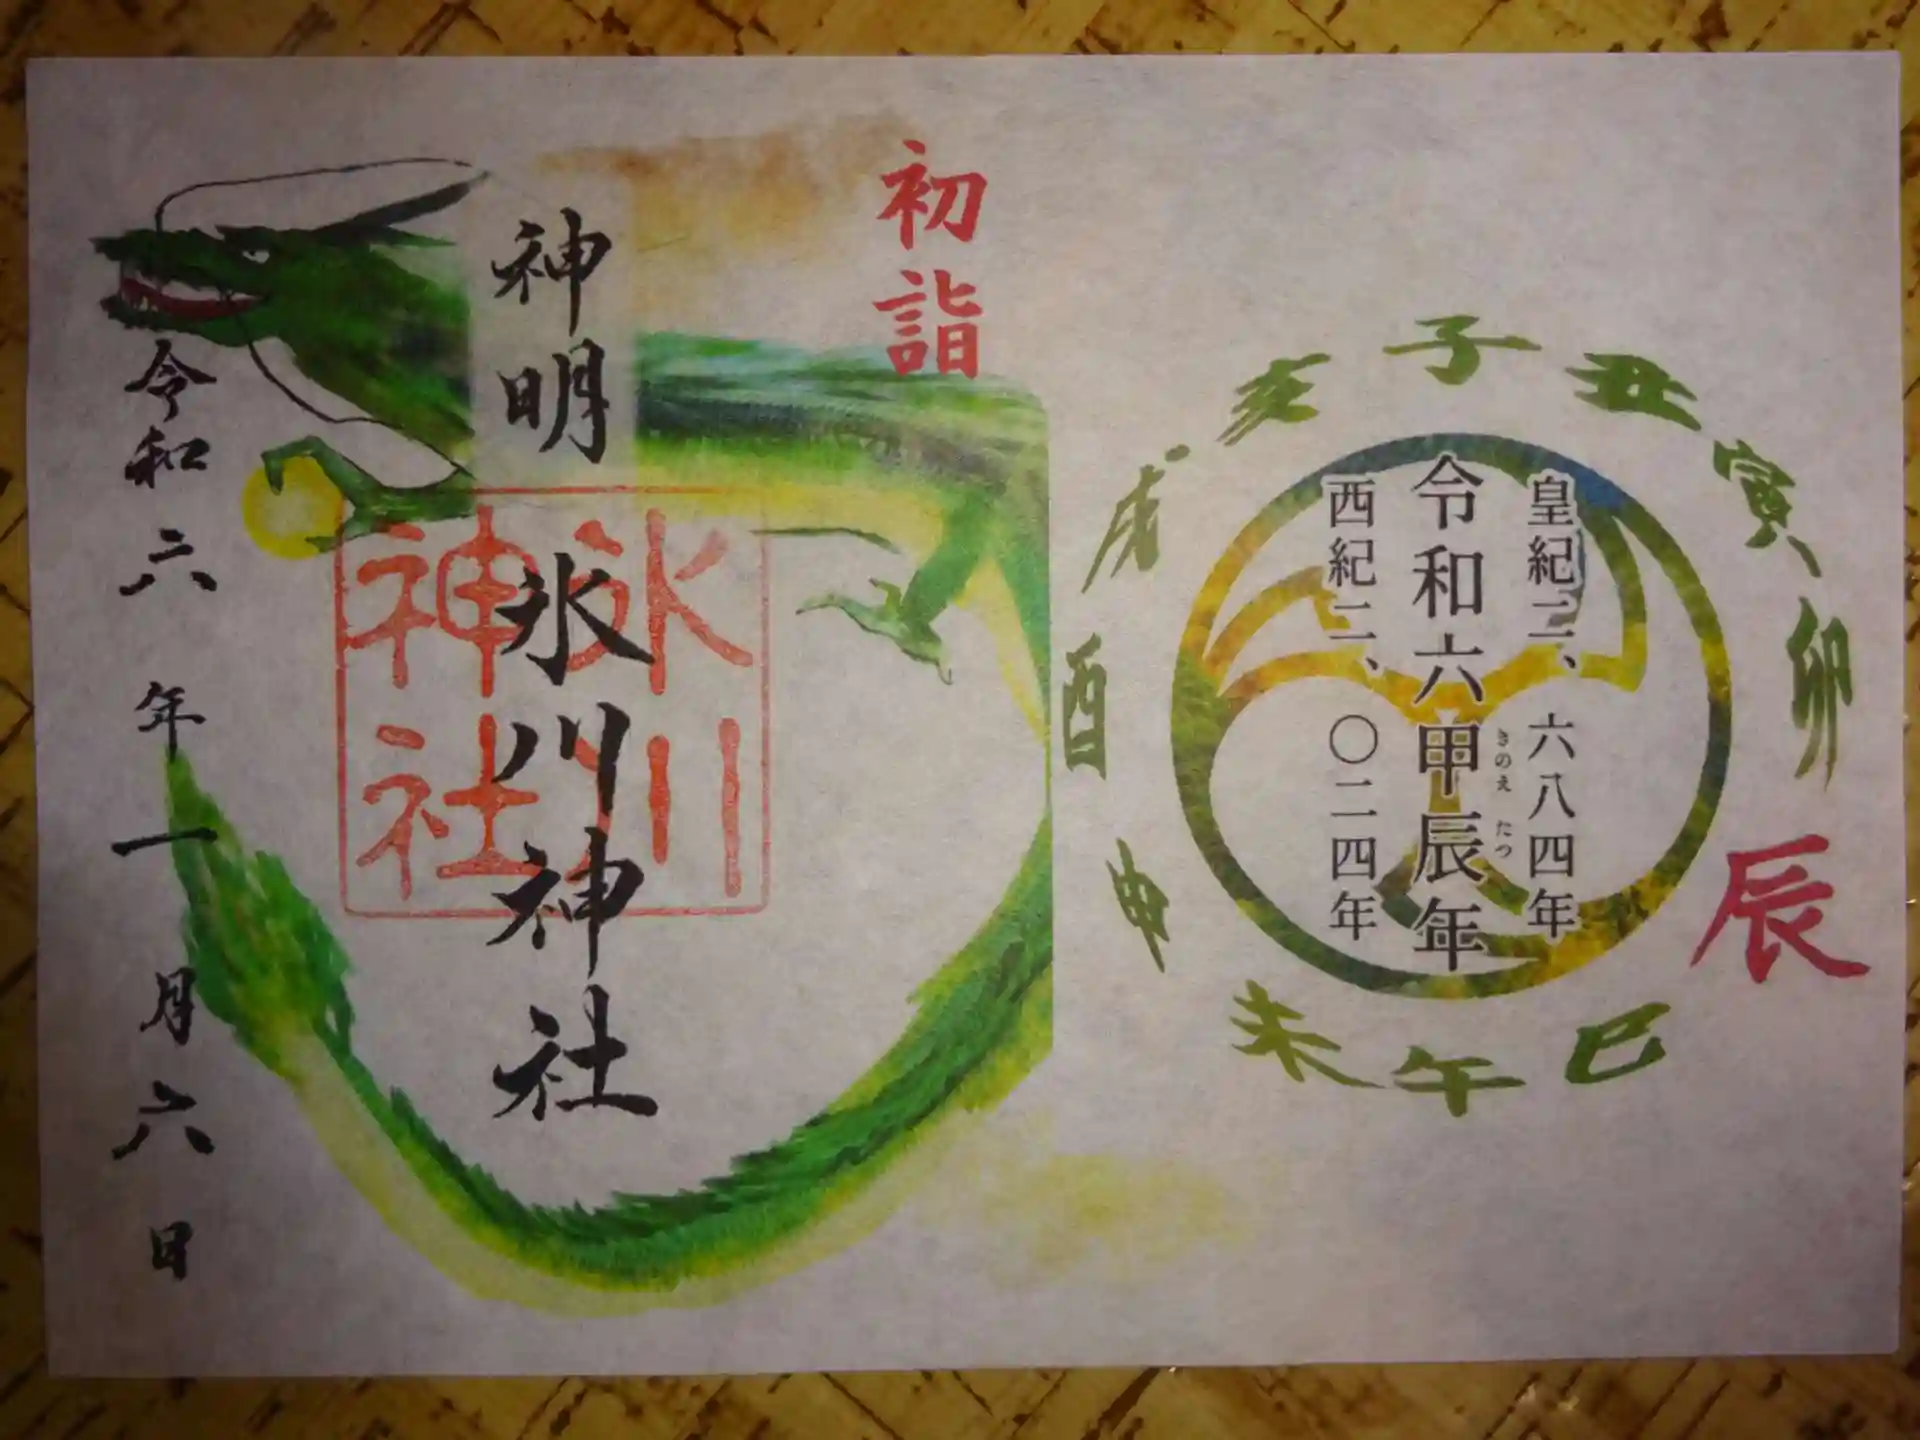 初詣
神明
氷川神社
氷川
神社
令和六年一月六日
皇紀二、六八四年
令和六甲辰年
きのえ たつ
西紀二、〇二四年
子
丑
寅
卯
辰
巳
午
未
申
酉
戌
亥